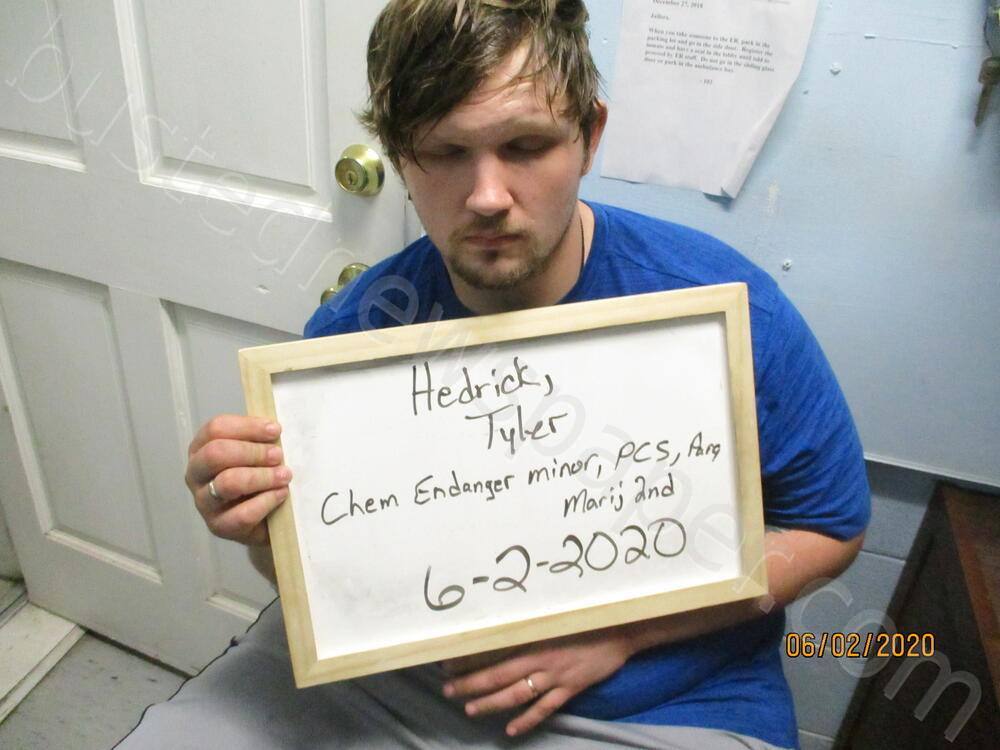 December 27, 2018
Jailers,
When you take someone to the ER, park in the
parking lot and go in the side door. Register the
inmate and have a seat in the lobby until told to
proceed by ER staff. Do not go in the sliding glass
door or park in the ambulance bay.
- 102
Hedrick,
Tyler
Chem Endanger minor, PCS, Para
Marij 2nd
6-2-2020
06/02/2020
bustednewspaper.com